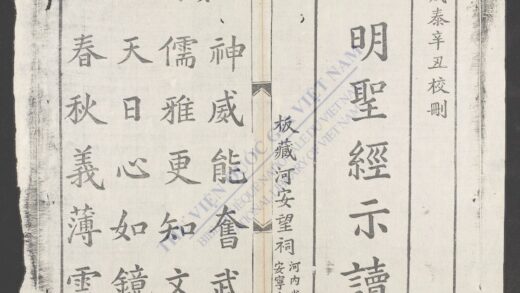 成泰辛丑校刪
明聖經示讀
板藏河安望祠
河內
安寧
神威能奮武
儒雅更知文
天日心如鏡
春秋義薄雲
THƯ VIỆN QUỐC GIA VIỆT NAM
NATIONAL LIBRARY OF VIETNAM